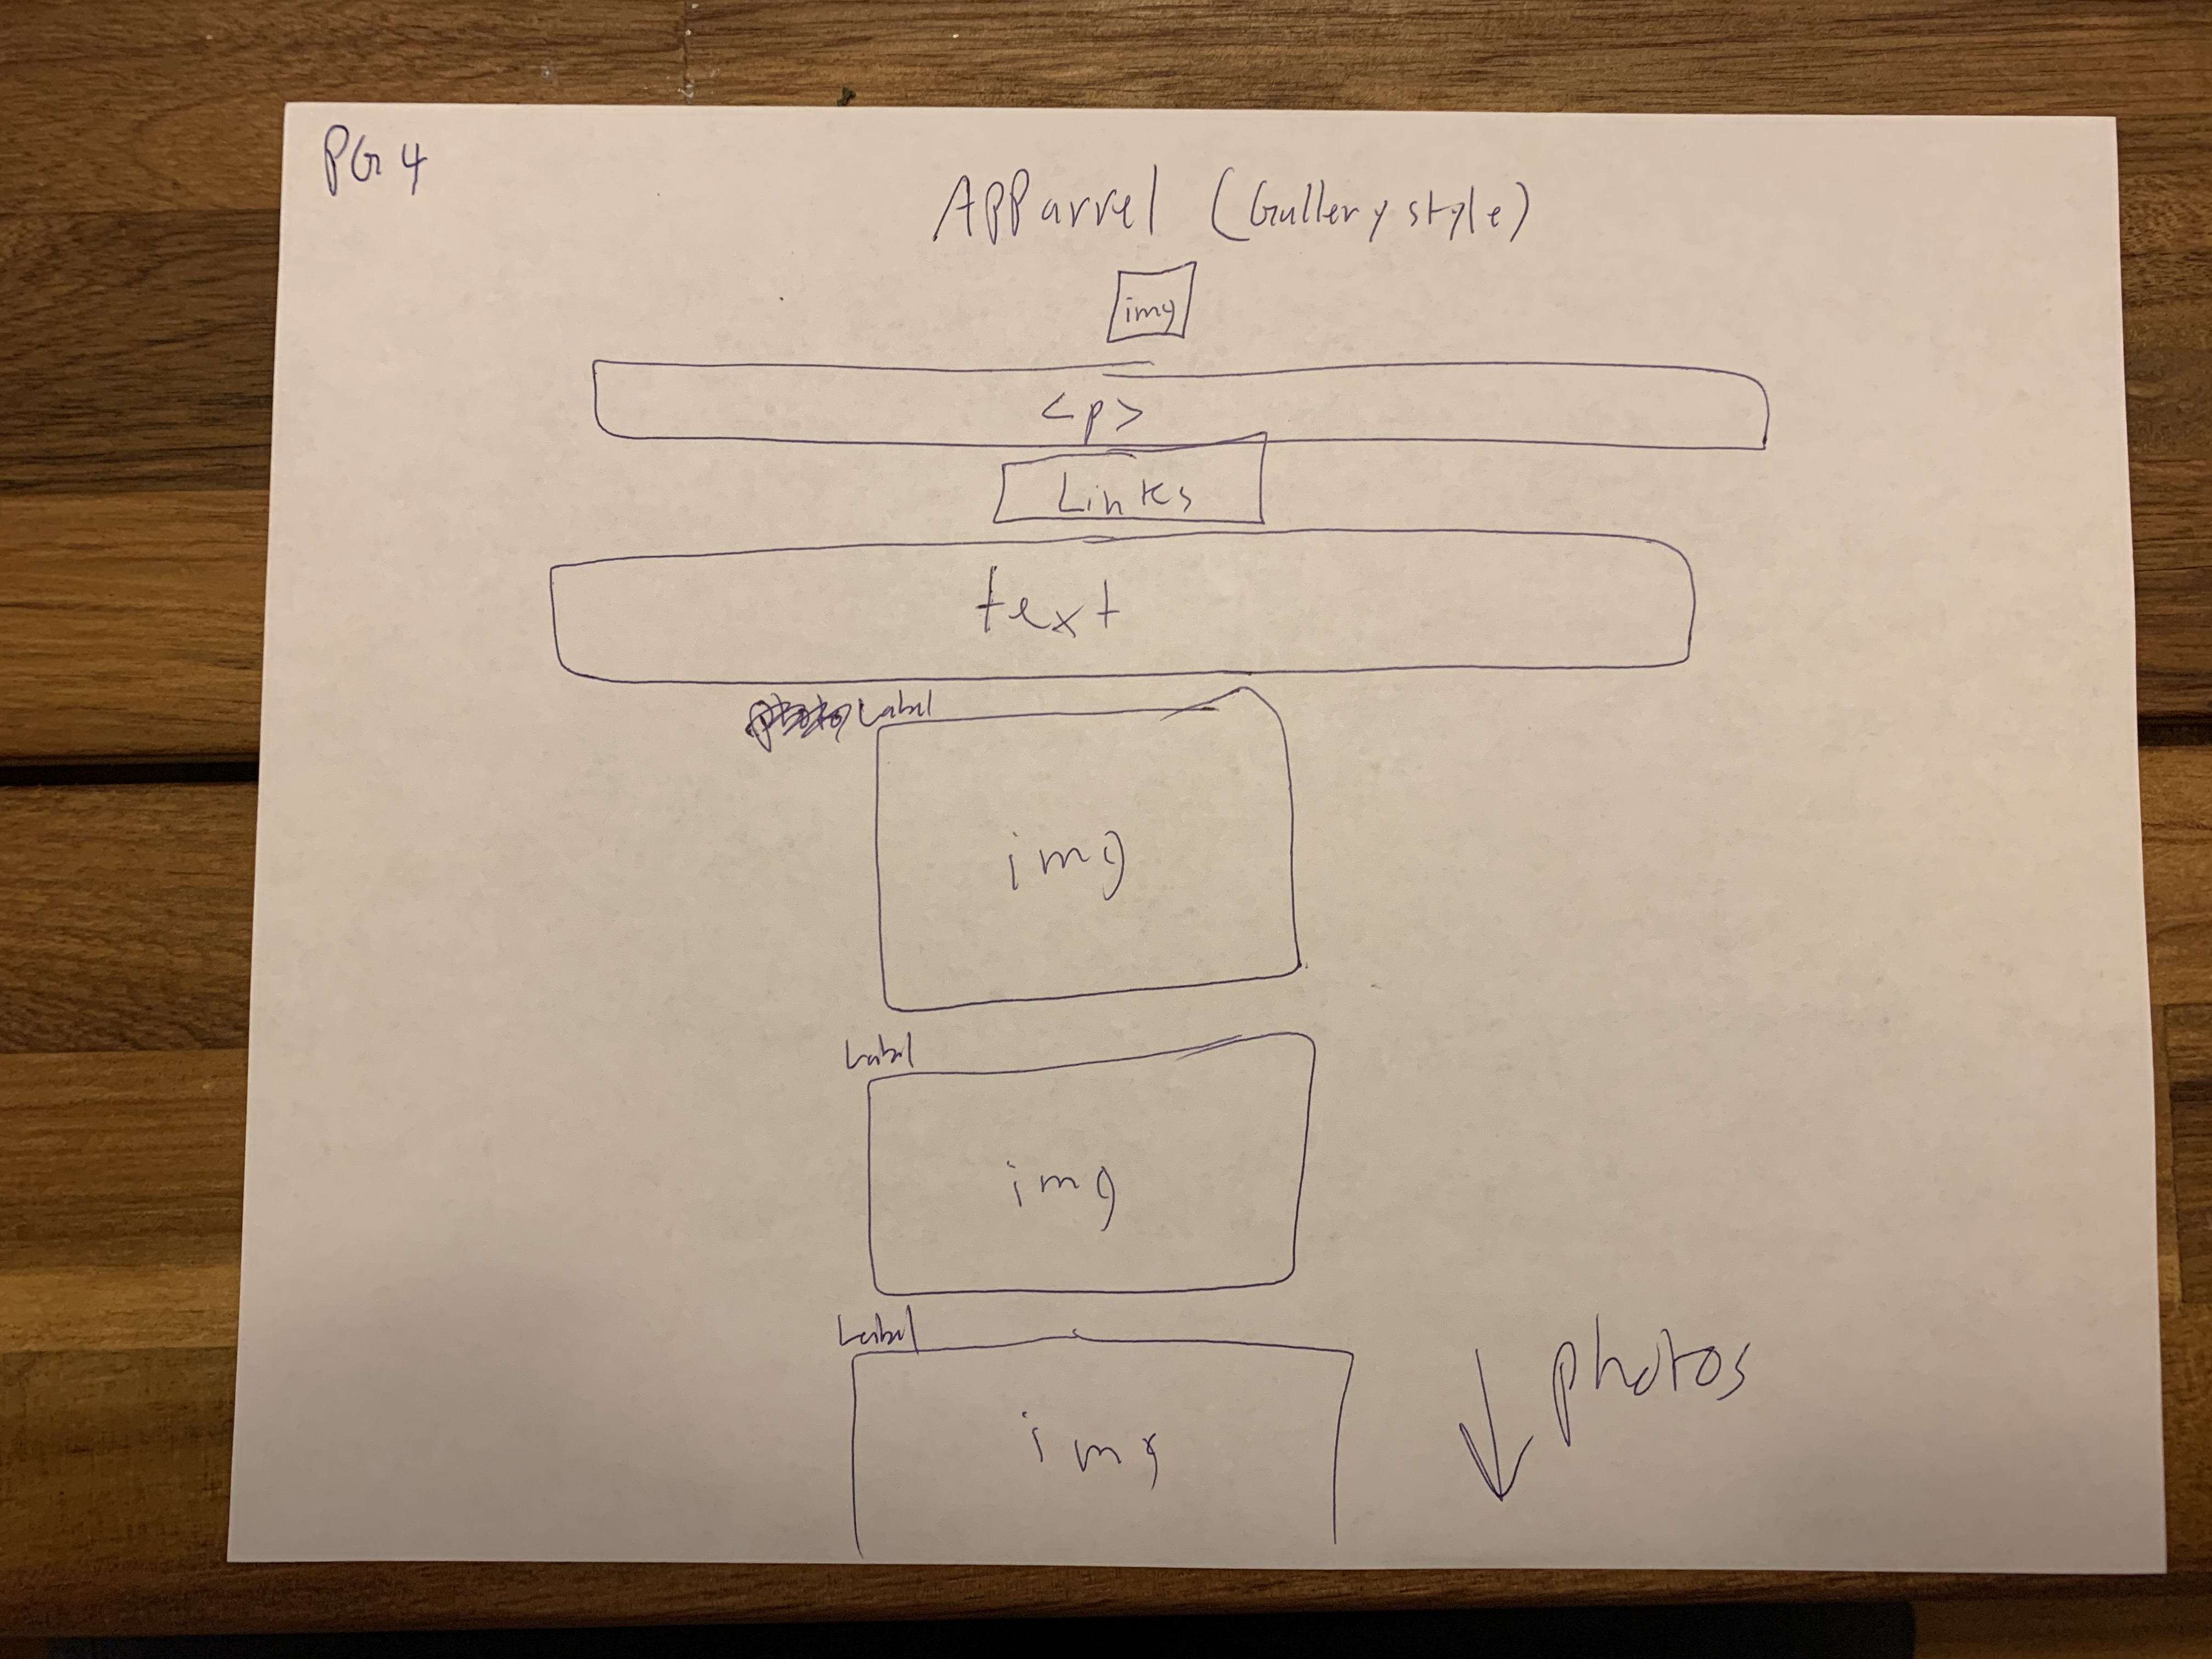 PG 4
Apparel (Gallery style)
img
<p>
Links
text
Label
img
Label
img
Label
img